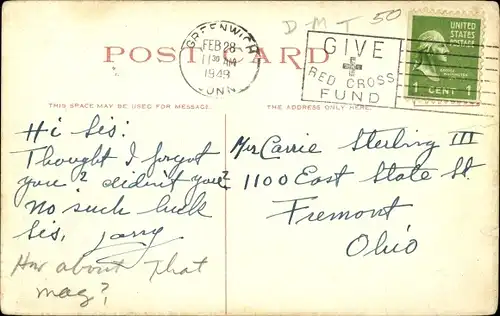 D M T 50
GREENWICH
FEB 28
11 30 AM
1949
CONN.
GIVE
RED CROSS
FUND
UNITED
STATES
POSTAGE
1 CENT 1
POST CARD
THIS SPACE MAY BE USED FOR MESSAGE.
THE ADDRESS ONLY HERE.
Hi Sis:
Thought I forgot
you? didn't you?
No such luck
Sis,
How about that
mag?
Mrs Carrie Sterling III
1100 East State St.
Fremont
Ohio